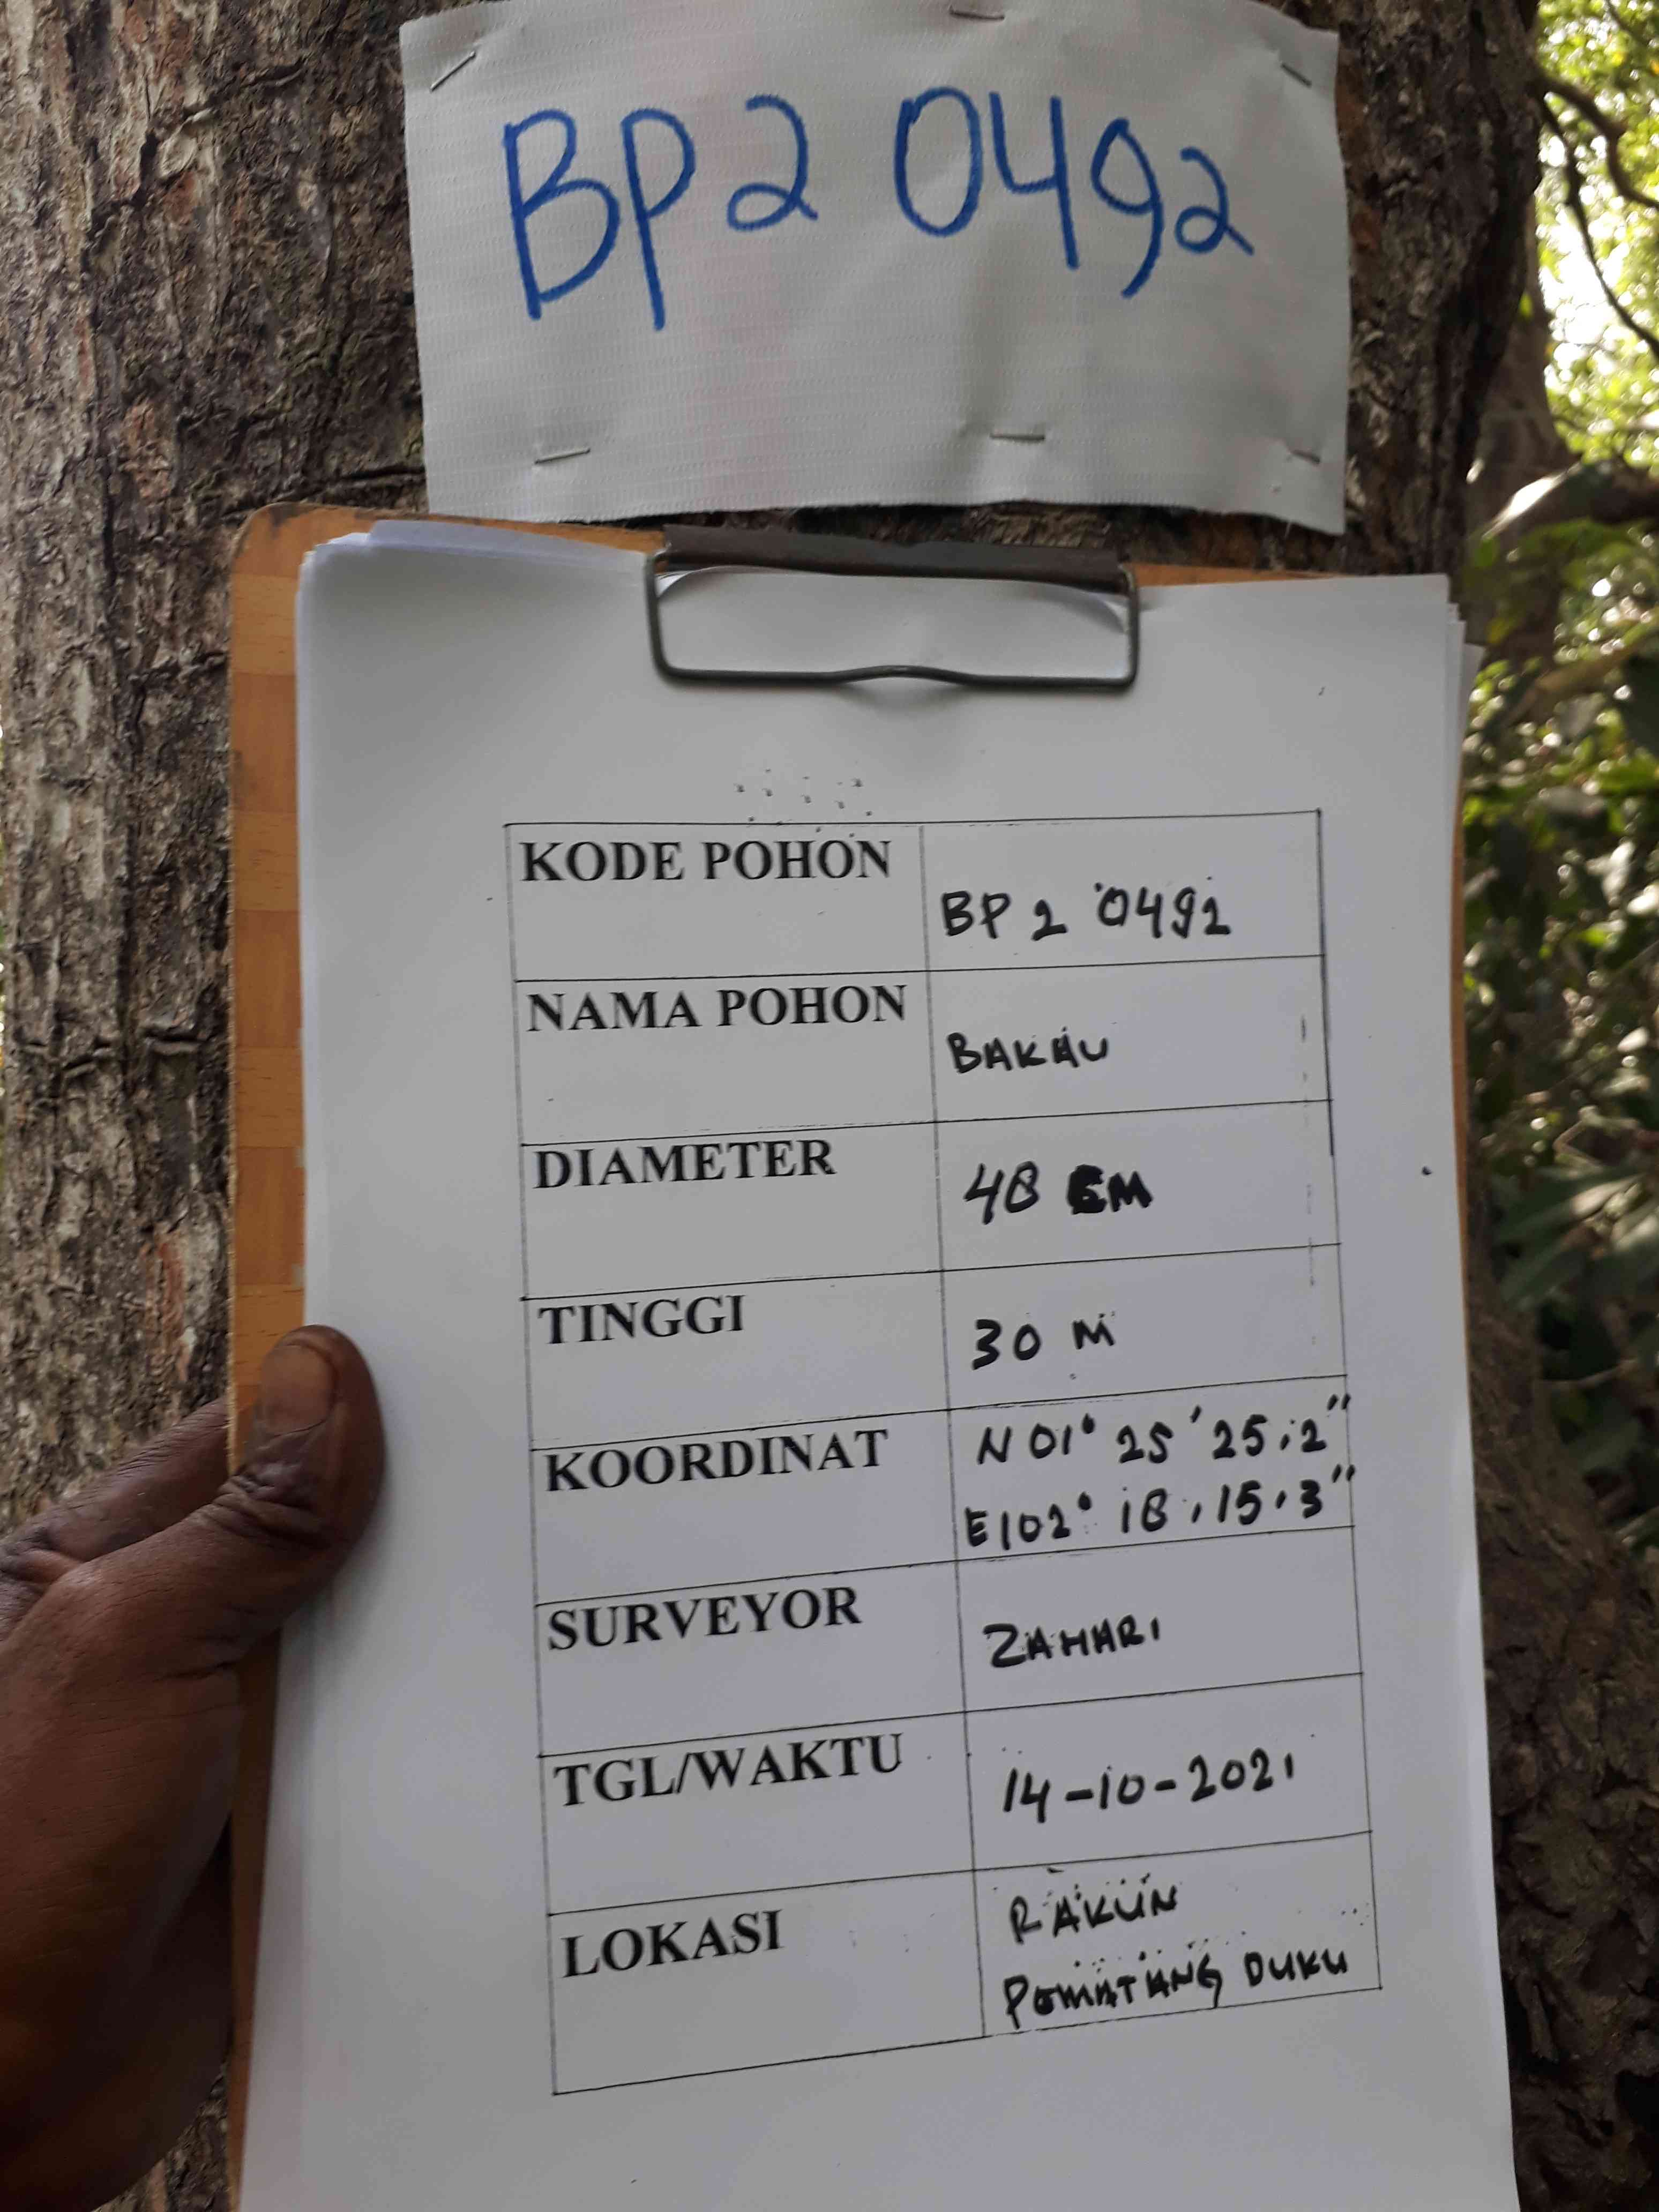 BP2 0492
KODE POHON
BP 2 0492
NAMA POHON
BAKAU
DIAMETER
48 CM
TINGGI
30 M
KOORDINAT
N 01° 25 ' 25.2"
E 102° 18 , 15.3"
SURVEYOR
ZAHARI
TGL/WAKTU
14-10-2021
LOKASI
RAKUN
PEMATANG DUKU